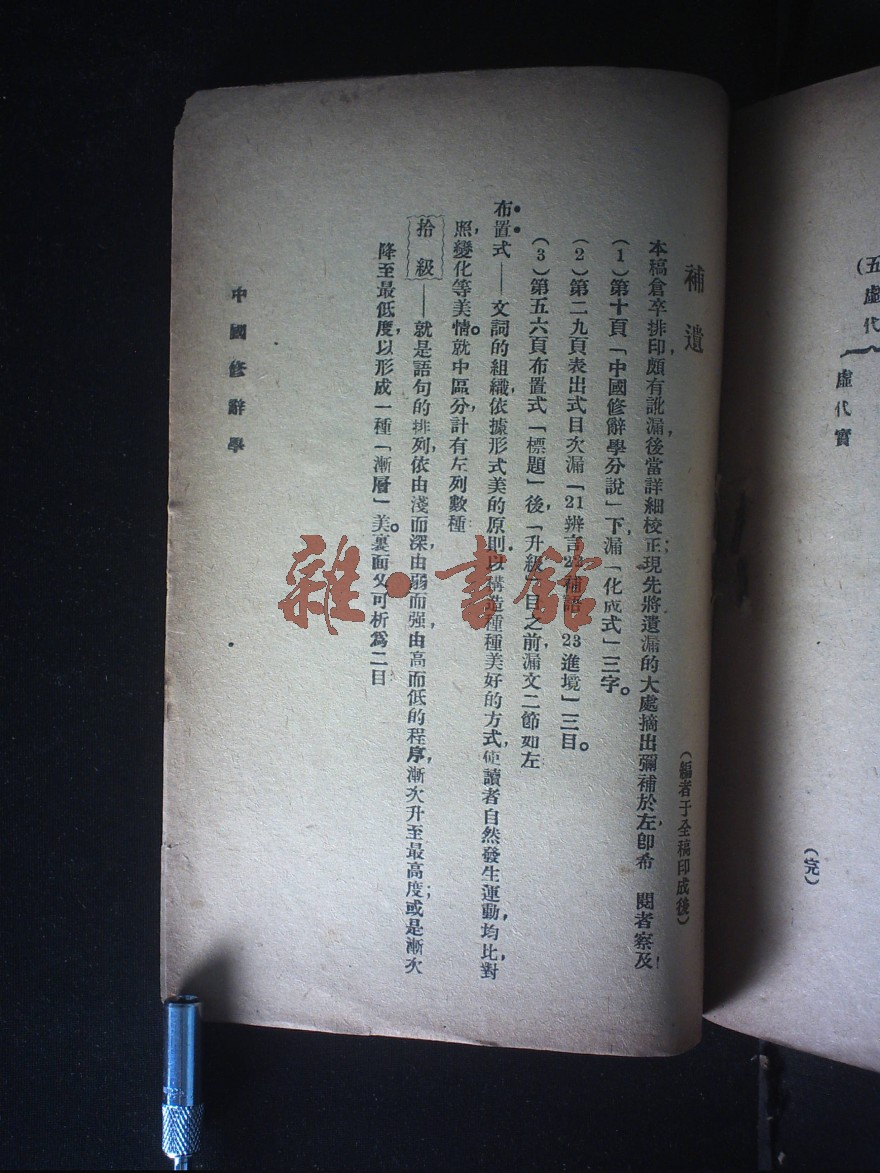 (五
虛代
虛代實
(完)
補遺
(編者于全稿印成後)
本稿倉卒排印,頗有訛漏後當詳細校正;現先將遺漏的大處摘出彌補於左,即希 閱者察及!
(1)第十頁「中國修辭學分說」下,漏「化成式」三字。
(2)第二九頁表出式目次漏「21辨言22補語,23進境」三目。
(3)第五六頁布置式「標題」後,「升級」目之前,漏文二節如左
布置式——文詞的組織,依據形式美的原則.以構造種種美好的方式,使讀者自然發生運動,均比,對
照,變化等美情。就中區分,計有左列數種:
拾級——就是語句的排列,依由淺而深,由弱而強,由高而低的程序,漸次升至最高度;或是漸次
降至最低度,以形成一種「漸層」美。裏面又可析爲二目
中國修辭學
雜·書館